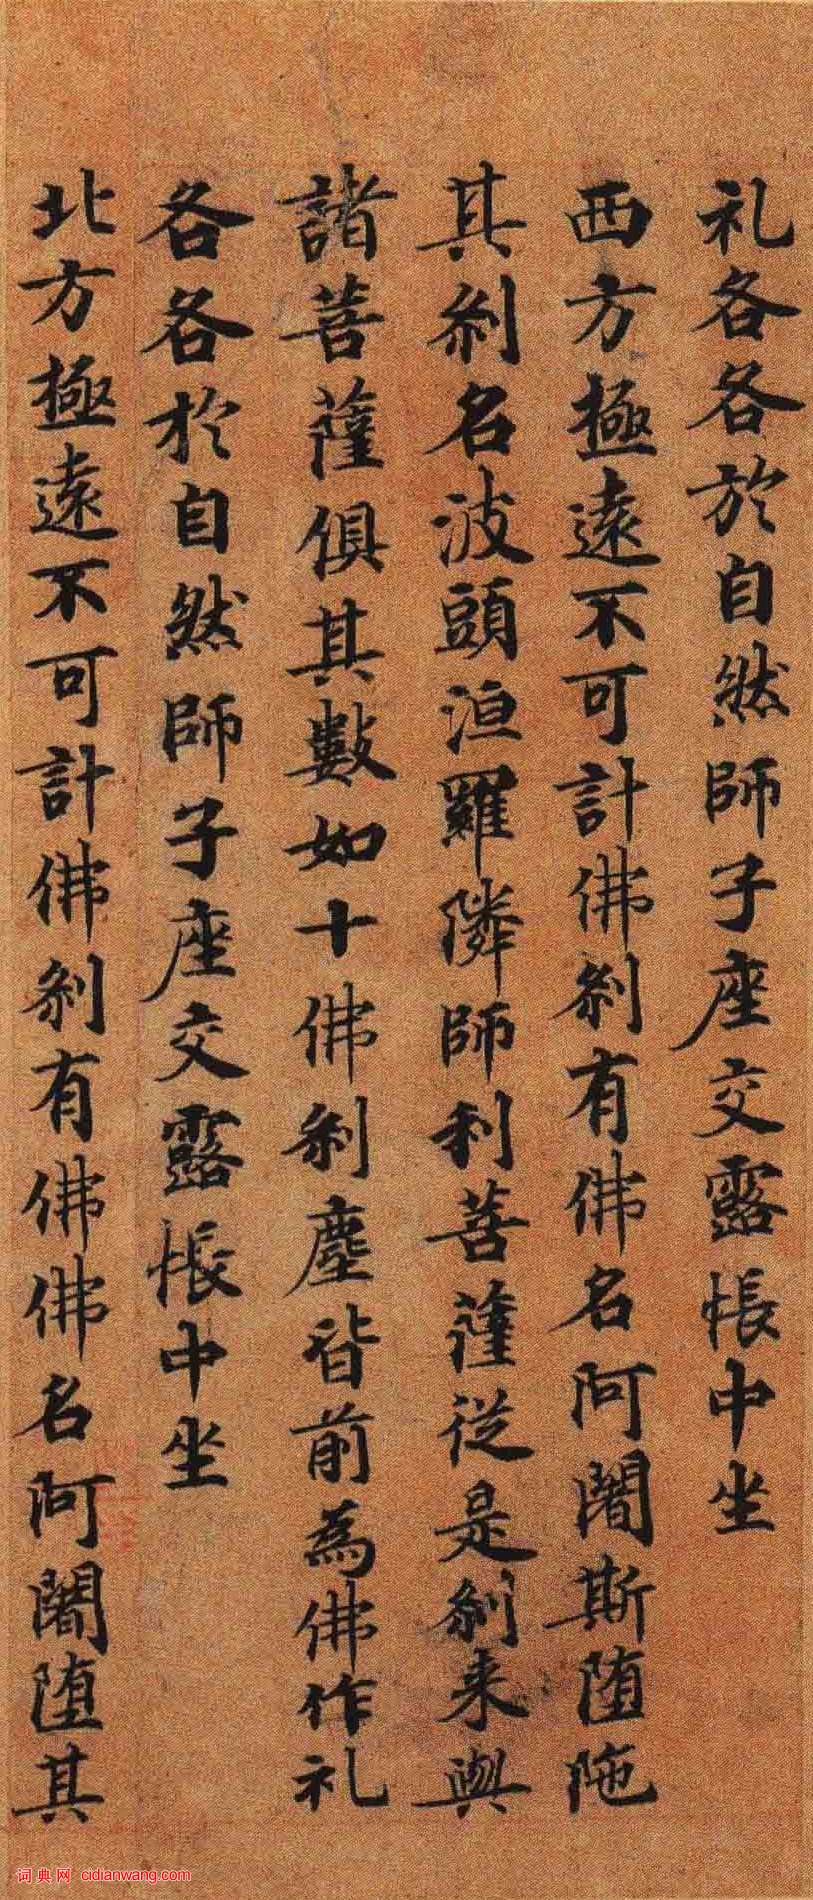 礼各各於自然師子座交露帳中坐
西方極遠不可計佛剎有佛名阿闍斯堕陁
其剎名波頭洹羅隣師利菩薩從是剎来與
諸菩薩俱其數如十佛剎塵皆前為佛作礼
各各於自然師子座交露帳中坐
北方極遠不可計佛剎有佛佛名阿闍堕其
词典网 cidianwang.com